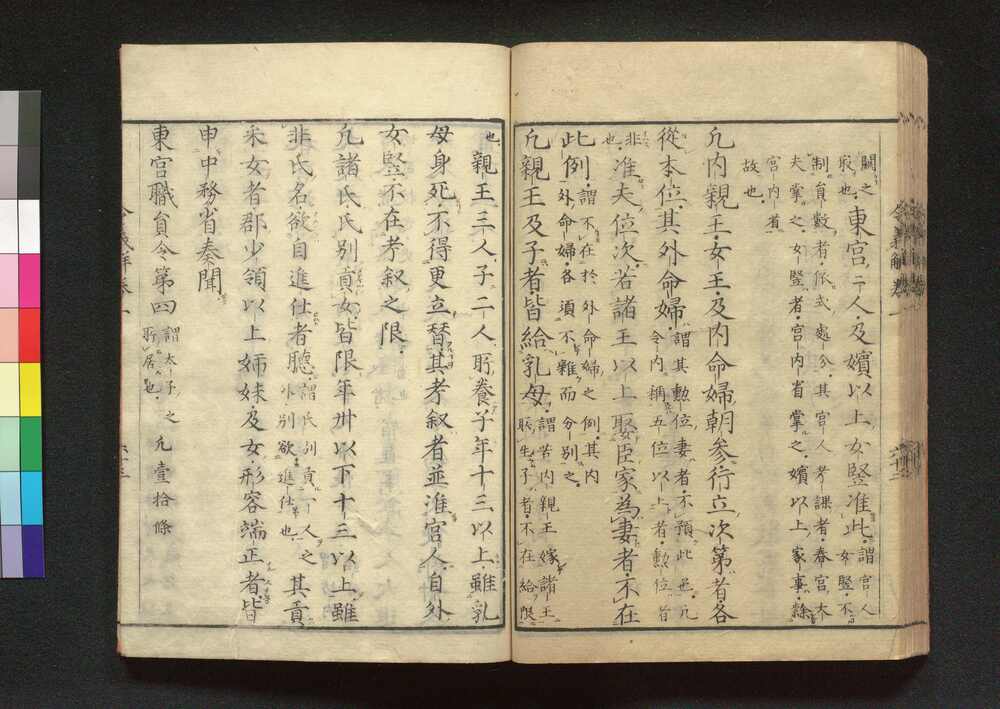 關之
最也東宮二人及嬪以上女竪准此謂宮人女竪不
制員數者依式處分其宮人考課者春宮大
夫掌之女竪者宮内省掌之嬪以上家事隸
宮内者
故也
凢内親王女王及内命婦朝參行立次第者各
從本位其外命婦謂其勲位妻者不預此
令内稱五位以上者勲位
非
也准夫位次若諸王以上娶臣家為妻者不在
此例謂不在於外命婦之例其内
外命婦各須不雜而分別之
凢親王及子者皆給乳母謂若内親王嫁諸王
所生子者不在給限
也親王三人子二人所養子年十三以上雖乳
母身死不得更立替其考叙者並准宮人自外
女竪不在考叙之限
凢諸氏氏別貢女皆限年卅以下十三以上雖
非氏名欲自進仕者聴謂氏別貢一人之
外別欲進仕也其貢
采女者郡少領以上姉妹及女形容端正者皆
申中務省奏聞
東宮職員令第四謂太子之
所居也凢壹拾條
令義解卷一
六十三